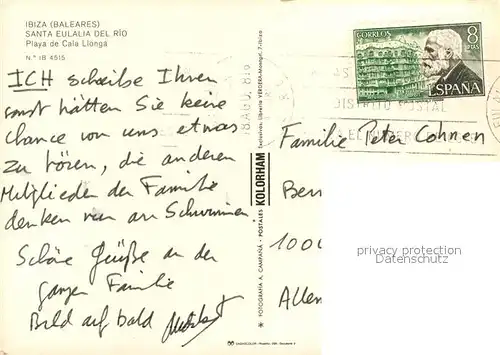 IBIZA (BALEARES)
SANTA EULALIA DEL RÍO
Playa de Cala Llonga
N.º IB 4515
ICH schreibe Ihnen
sonst hätten Sie keine
Chance von uns etwas
zu hören, die anderen
Mitglieder der Familie
denken nur an Schwimmen.
Schöne Grüße an der
ganzen Familie
Bild auf bald
Exclusivas: Librería VERDERA
FOTOGRAFIA A. CAMPAÑA - POSTALES KOLORHAM
CORREOS
8
PTAS
ESPAÑA
18 AGO.
DISTRITO POSTAL
EL NUMERO
Familie Peter Cohnen
Ben
1000
Allem
privacy protection
Datenschutz